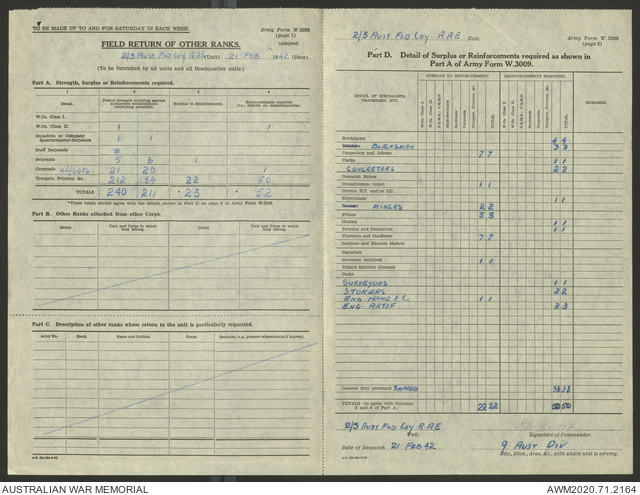 TO BE MADE UP TO AND FOR SATURDAY IN EACH WEEK.
Army Form W.3009
(page 1)
(Adapted)
FIELD RETURN OF OTHER RANKS.
2/3 Aust Fld Coy RAE (Unit) 21 Feb 1942 (Date)
(To be furnished by all units and all Headquarter units.)
Part A. Strength, Surplus or Reinforcements required.
1 2 3 4
Detail.
Surplus to Establishment.
Reinforcements required
W.Os. Class I.
W.Os. Class II. 1 1
Squadron or Company Quartermaster-Serjeants 1 1
Staff Serjeants
Serjeants 5 6 1
Corporals 21 20
Troopers, Privates, &c. 212 22 50
TOTALS 240 211 23 52
*These totals should agree with the details shown in Part D on page 2 of Army Form W.3009.
Part B. Other Ranks attached from other Corps.
Detail. Unit and Corps to which they belong. Detail. Unit and Corps to which they belong.
Part C. Description of other ranks whose return to the unit is particularly requested.
Army No. Rank. Name and Initials. Corps. Remarks (e.g., present whereabouts if known).
2/3 Aust Fld Coy RAE Unit.
Army Form W.3009
(page 2)
Part D. Detail of Surplus or Reinforcements required as shown in
Part A of Army Form W.3009.
SURPLUS TO ESTABLISHMENT. REINFORCEMENTS REQUIRED.
DETAIL OF SPECIALISTS, TRADESMEN, ETC.
REMARKS.
Bricklayers 4 4
BLACKSMITH 3 3
Carpenters and Joiners 7 7
Clerks 1 1
CONCRETORS 2 2
Despatch Riders
Draughtsmen 1 1
Drivers M.T. and/or I.C.
Electricians 1 1
MINERS 2 2
Fitters 3 3
Masons 1 1
Painters and Decorators 1 1
Plumbers and Gasfitters 7 7
Saddlers and Harness Makers
Signallers
Storemen technical 1 1
Vickers Machine Gunners
Cooks
SURVEYORS 1 1
STOKERS 2 2
ENG 1 1
ENG ARTIF 3 3
General duty personnel SAPPERS
TOTALS (to agree with Columns 3 and 4 of Part A.) 22 22 50 50
2/3 Aust Fld Coy RAE
Unit.
Signature of Commander.
Date of Despatch. 21 Feb 42
9 Aust Div
Bde., Divn., Area, &c., with which unit is serving.
AUSTRALIAN WAR MEMORIAL
AWM2020.71.2164